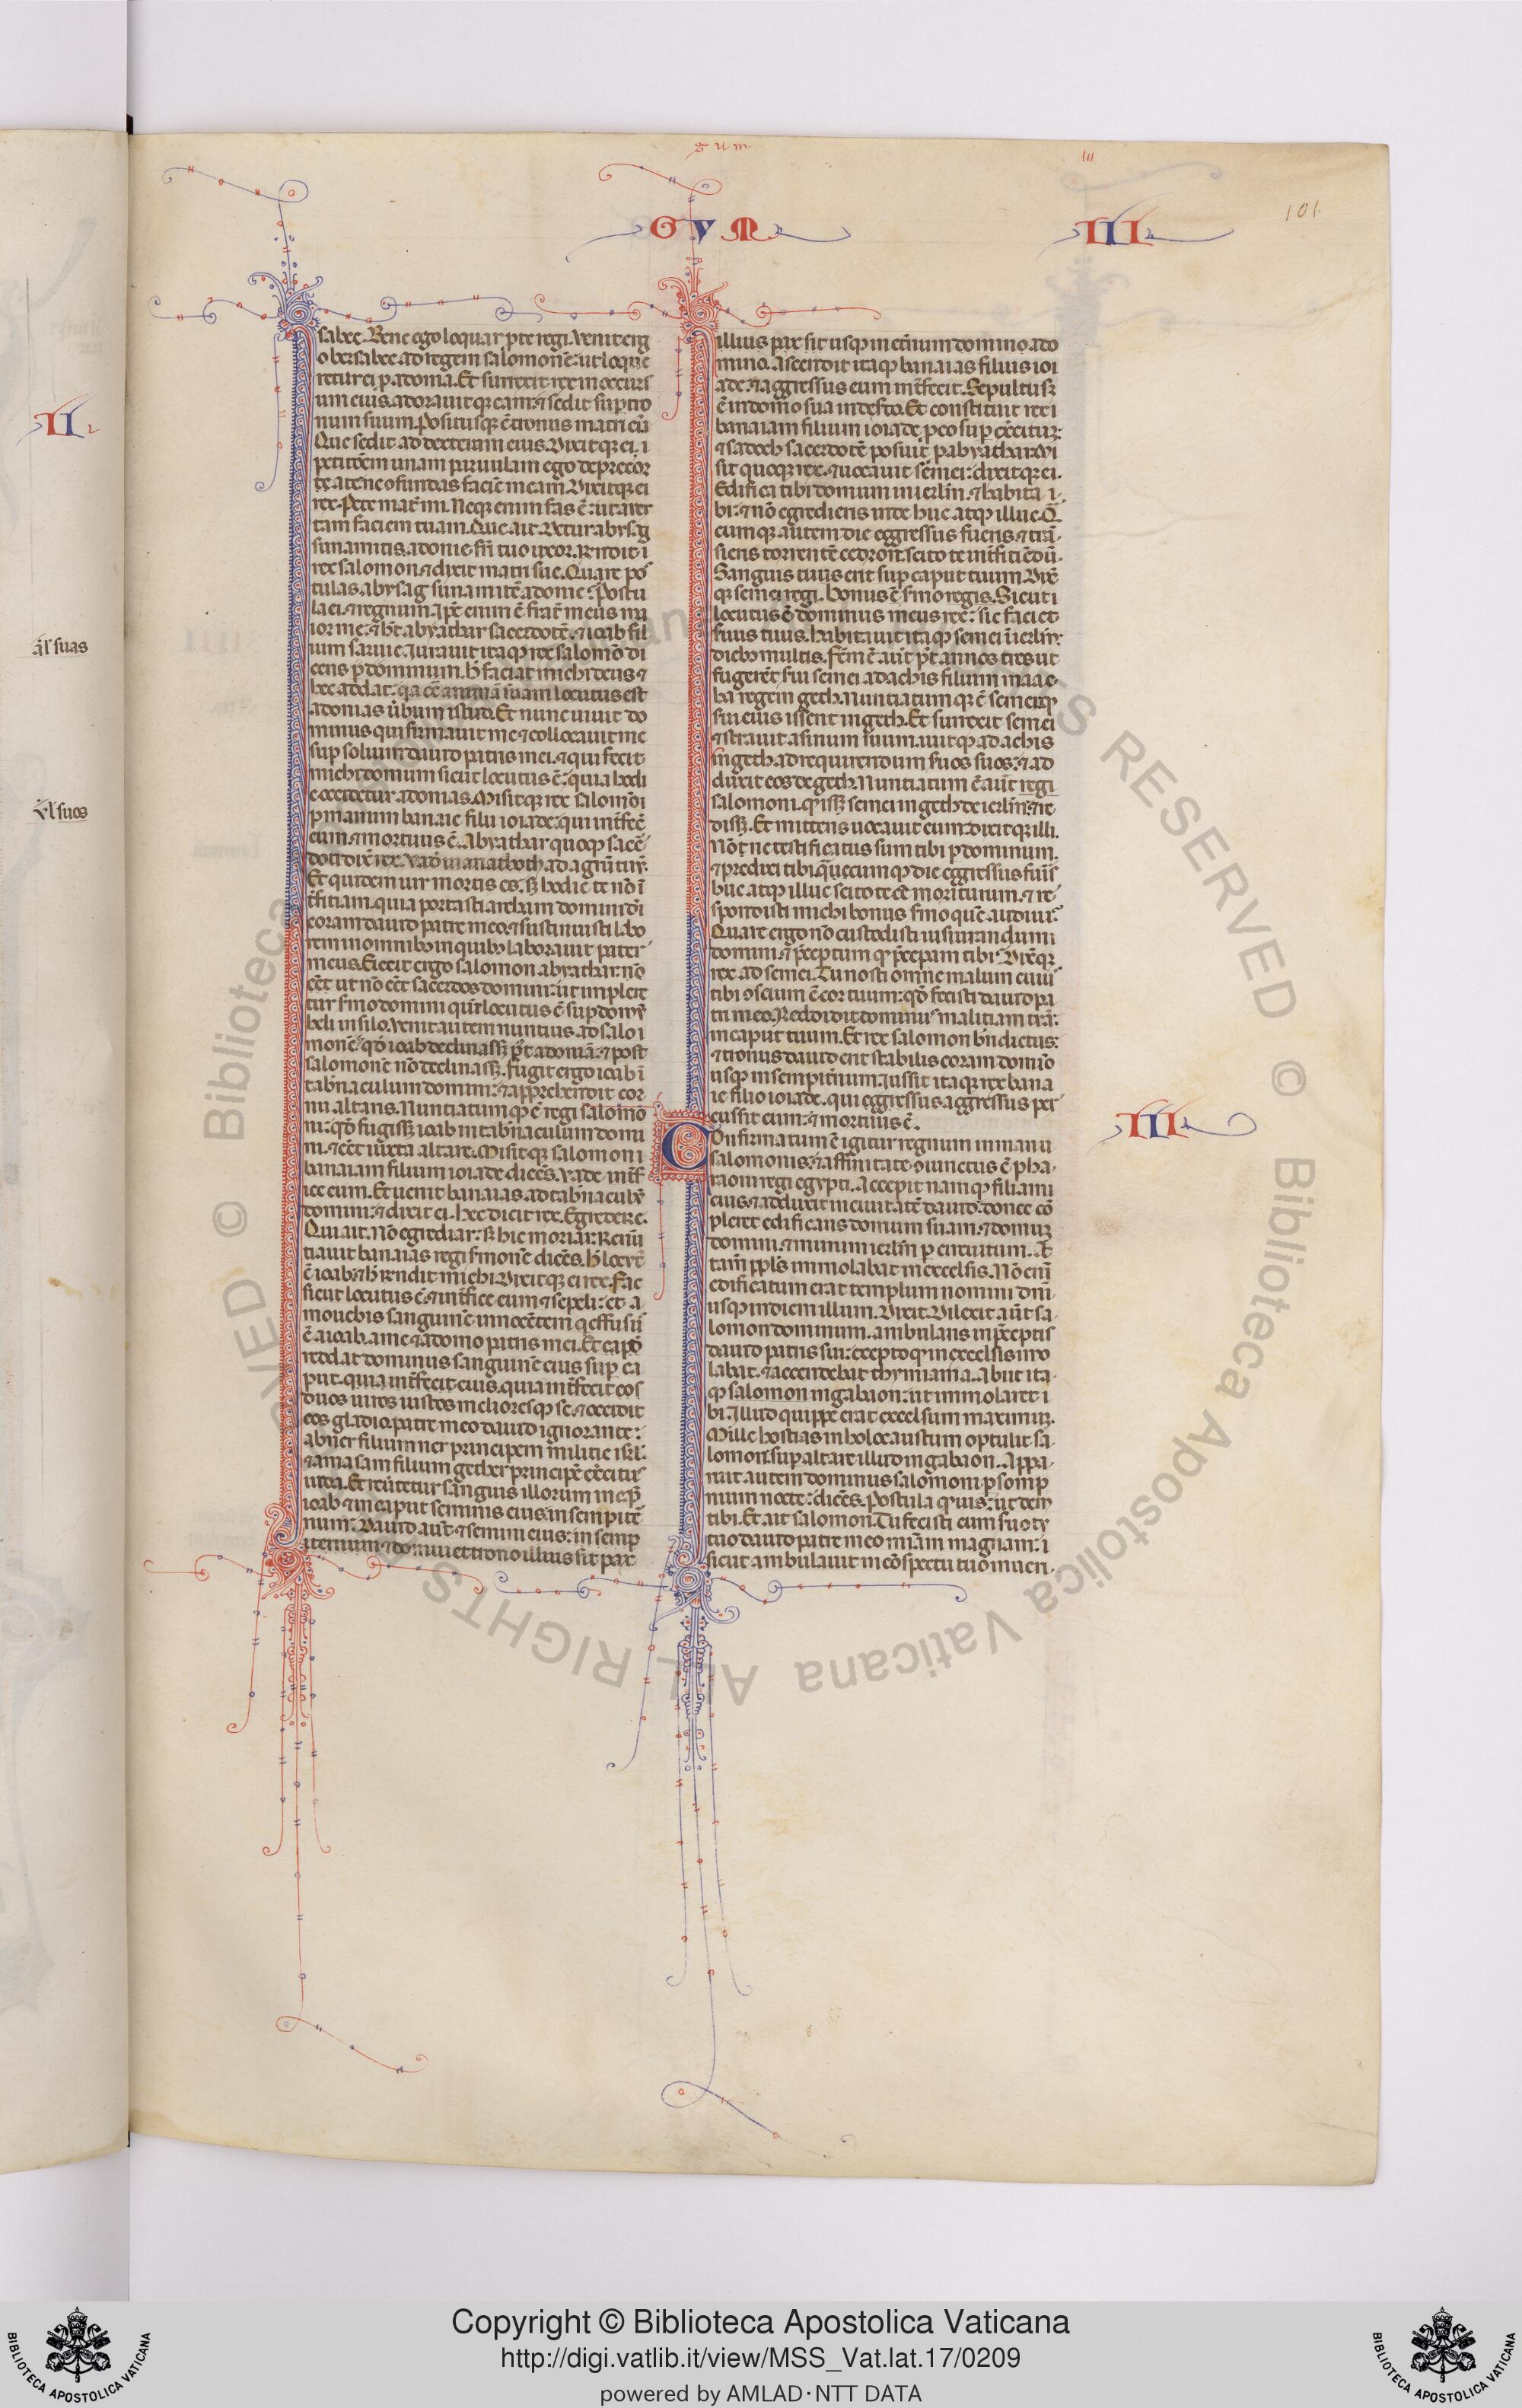 gum
III
101
GUM
III
II
ał suas
ul suos
sabee. Bene ego loquar p̄ te regi. Uenit erg
o bersabee ad regem salomonē: ut loque
retur ei p̱ adonia. Et surrexit rex in occurs
um eius. adorauitq; eam: ⁊ sedit sup̱ tro
num suum. Positusq; ē tronus matri eiꝰ
Que sedit ad dexteram eius. Dixitq; ei.
petitōem unam paruulam ego deprecor
te a te ne ofundas faciē meam. Dixitq; ei
rex. Pete mat̄ mi. Neq; enim fas ē: ut auer
tam faciem tuam. Que ait. Detur abysag
sunamitis. adonie fr̄i tuo uxor. Rn̄dit
rex salomon. ⁊ dixit matri sue. Quare pos
tulas abysag sunamitē adonie: Postu
la ei. ⁊ regnum. Ip̄e enim ē frat̄ meus ma
ior me: ⁊ h̄t abyathar sacerdotē. ⁊ ioab fil
ium saruie. Iurauit itaq; rex salomō di
cens p̱ dominum. H̄ faciat michi deus ⁊
hec addat: q̇a cōt̄ animā suam locutus est
adonias ūbum istud. Et nunc uiuit do
minus qui firmauit me ⁊ collocauit me
sup̱ solium dauid patris mei. ⁊ qui fecit
michi domum sicut locutus ē: quia hodi
e occidetur adonias. Misitq; rex salomō
p̱ manum banaie filii ioiade: qui int̄fecē
eum. ⁊ mortuus ē. Abyathar quoq; sacē
doti dix̄ rex. Uade in anathoth ad agrū tuū.
Et quidem uir mortis es. s; hodie te nō ī
t̄ficiam. quia portasti archam domini dī
coram dauid patre meo. ⁊ sustinuisti labo
rem in omnib; in quib; laborauit pater
meus. Eiecit ergo salomon abyathar. nō
eēt ut nō eēt sacerdos domini: ut impleret
tur s̄mo domini quē locutus ē sup̱ domū
heli in silo. Uenit autem nuntius ad salo
monē. qd̄ ioab declinass; p̄t adoniā. ⁊ post
salomonē nō declinass;. Fugit ergo ioab ī
tab̄naculum domini: ⁊ apprehendit cor
nu altaris. Nuntiatumq; ē regi salomo
ni: qd̄ fugiss; ioab in tab̄naculum domi
ni. ⁊ eēt iuxta altare. Misitq; salomon
banaiam filium ioiade dicēs. Uade int̄f
ice eum. Et uenit banaias ad tab̄naculū
domini: ⁊ dixit ei. hec dicit rex. Egredere.
Qui ait. Nō egrediar: s; hic moriar. Renū
tiauit banaias regi s̄monē dicēs. H̄ locut̄
ē ioab: ⁊ h̄ rn̄dit michi. Dixitq; ei rex. Fac
sicut locutus ē. ⁊ int̄fice eum ⁊ sepeli: et a
mouebis sanguinē innocētem q̇ effusū
ē a ioab. a me ⁊ a domo patris mei. Et
reddat dominus sanguinē eius sup̱ ca
put. quia int̄fecit eius. quia int̄fecit eos
duos uiros iustos melioresq; se. ⁊ occidit
eos gladio. patre meo dauid ignorante:
abner filium ner principem militie isrl.
⁊ amasam filium gether principē exercitꝰ
iuda. Et reūtetur sanguis illorum in cap̱
ioab ⁊ in caput seminis eius in sempitē
num: Dauid aut̄ ⁊ semini eius: in semp
iternum ⁊ domui et trono illius sit pax
illius pax sit usq; in et̄num domino a do
mino. Ascendit itaq; banaias filius ioi
ade. ⁊ aggressus eum int̄fecit. Sepultusq;
ē in domo sua in desto. Et constituit rex
banaiam filium ioiade p̱ eo sup̱ exercitū:
⁊ sadoch sacerdotē posuit p̱ abyathar. Mi
sit quoq; rex. ⁊ uocauit semei: dixitq; ei.
Edifica tibi domum in ierlm̄. ⁊ habita i
bi: ⁊ nō egredieris inde huc atq; illuc. Q̄
cumq; autem die egressus fueris. ⁊ trā
siens torrentē cedron. scito te int̄ficiēdū.
Sanguis tuus erit sup̱ caput tuum. Dix̄
q; semei regi. bonus ē s̄mo regis. Sicuti
locutus ē dominus meus rex: sic faciet
seruus tuus. Habitauit itaq; semei ī ierlm̄
dieb; multis. Fcm̄ ē aut̄ p̄t annos tres ut
fugerēt s̄ui semei ad achis filium maac
ha regem geth. Nuntiatumq; ē semei q̇
s̄ui eius issent in geth. Et surrexit semei
⁊ strauit asinum suum. iuitq; ad achis
in geth ad requirendum s̄uos suos: ⁊ ad
duxit eos de geth. Nuntiatum ē aut̄ regi
salomoni. q̇ iss; semei in geth de ierlm̄. ⁊ re
diss;. Et mittens uocauit eum: dixitq; illi.
Nōn̄e testificatus sum tibi p̱ dominum.
⁊ predixi tibi q̄cumq; die egressus fuīs
huc atq; illuc scito te eē moriturum. ⁊ re
spondisti michi bonus s̄mo quē audiui.
Quare ergo nō custodisti iusiurandum
domini. ⁊ p̄ceptum q̇ p̄cepi tibi. Dixitq;
rex ad semei. Tu nosti omne malum cuiꝰ
tibi ꝯscium ē cor tuum: qd̄ fecisti dauid pa
tri meo. Reddidit dominus malitiam tuā:
in caput tuum. Et rex salomon bn̄dictus:
⁊ tronus dauid erit stabilis coram domīo
usq; in sempit̄num. Iussit itaq; rex bana
ie filio ioiade. qui egressus. aggressus per
cussit eum: ⁊ mortuus ē.
III
Confirmatum ē igitur regnum in manu
salomonis: ⁊ affinitate ꝯiunctus ē pha
raoni regi egypti. Accepit namq; filiam
eius. ⁊ adduxit in ciuitatē dauid: donec cō
pleret edificans domum suam. ⁊ domuꝫ
domini. ⁊ murum ierlm̄ p̱ circuitum. At
tam̄ ppl̄s immolabat in excelsis. Nō eni
edificatum erat templum nomini dn̄i
usq; in diem illum. Dixit. Dilexit aut̄ sa
lomon dominum. ambulans in p̄ceptis
dauid patris sui: excepto q̇ in excelsis imo
labat. ⁊ accendebat thymiama. Abiit ita
q; salomon in gabaon: ut immolaret i
bi. Illud quippe erat excelsum maximuꝫ.
Mille hostias in holocaustum optulit sa
lomon. sup̱ altare illud in gabaon. Appa
ruit autem dominus salomoni p̱ somp
nium nocte: dicēs. Postula q̇ uis: ut dem
tibi. Et ait salomon. Tu fecisti cum s̄uo tu
tuo dauid patre meo mīam magnam: i
sicut ambulauit in cōspectu tuo in ueri
Copyright © Biblioteca Apostolica Vaticana
http://digi.vatlib.it/view/MSS_Vat.lat.17/0209
powered by AMLAD·NTT DATA
BIBLIOTECA APOSTOLICA VATICANA
BIBLIOTECA APOSTOLICA VATICANA